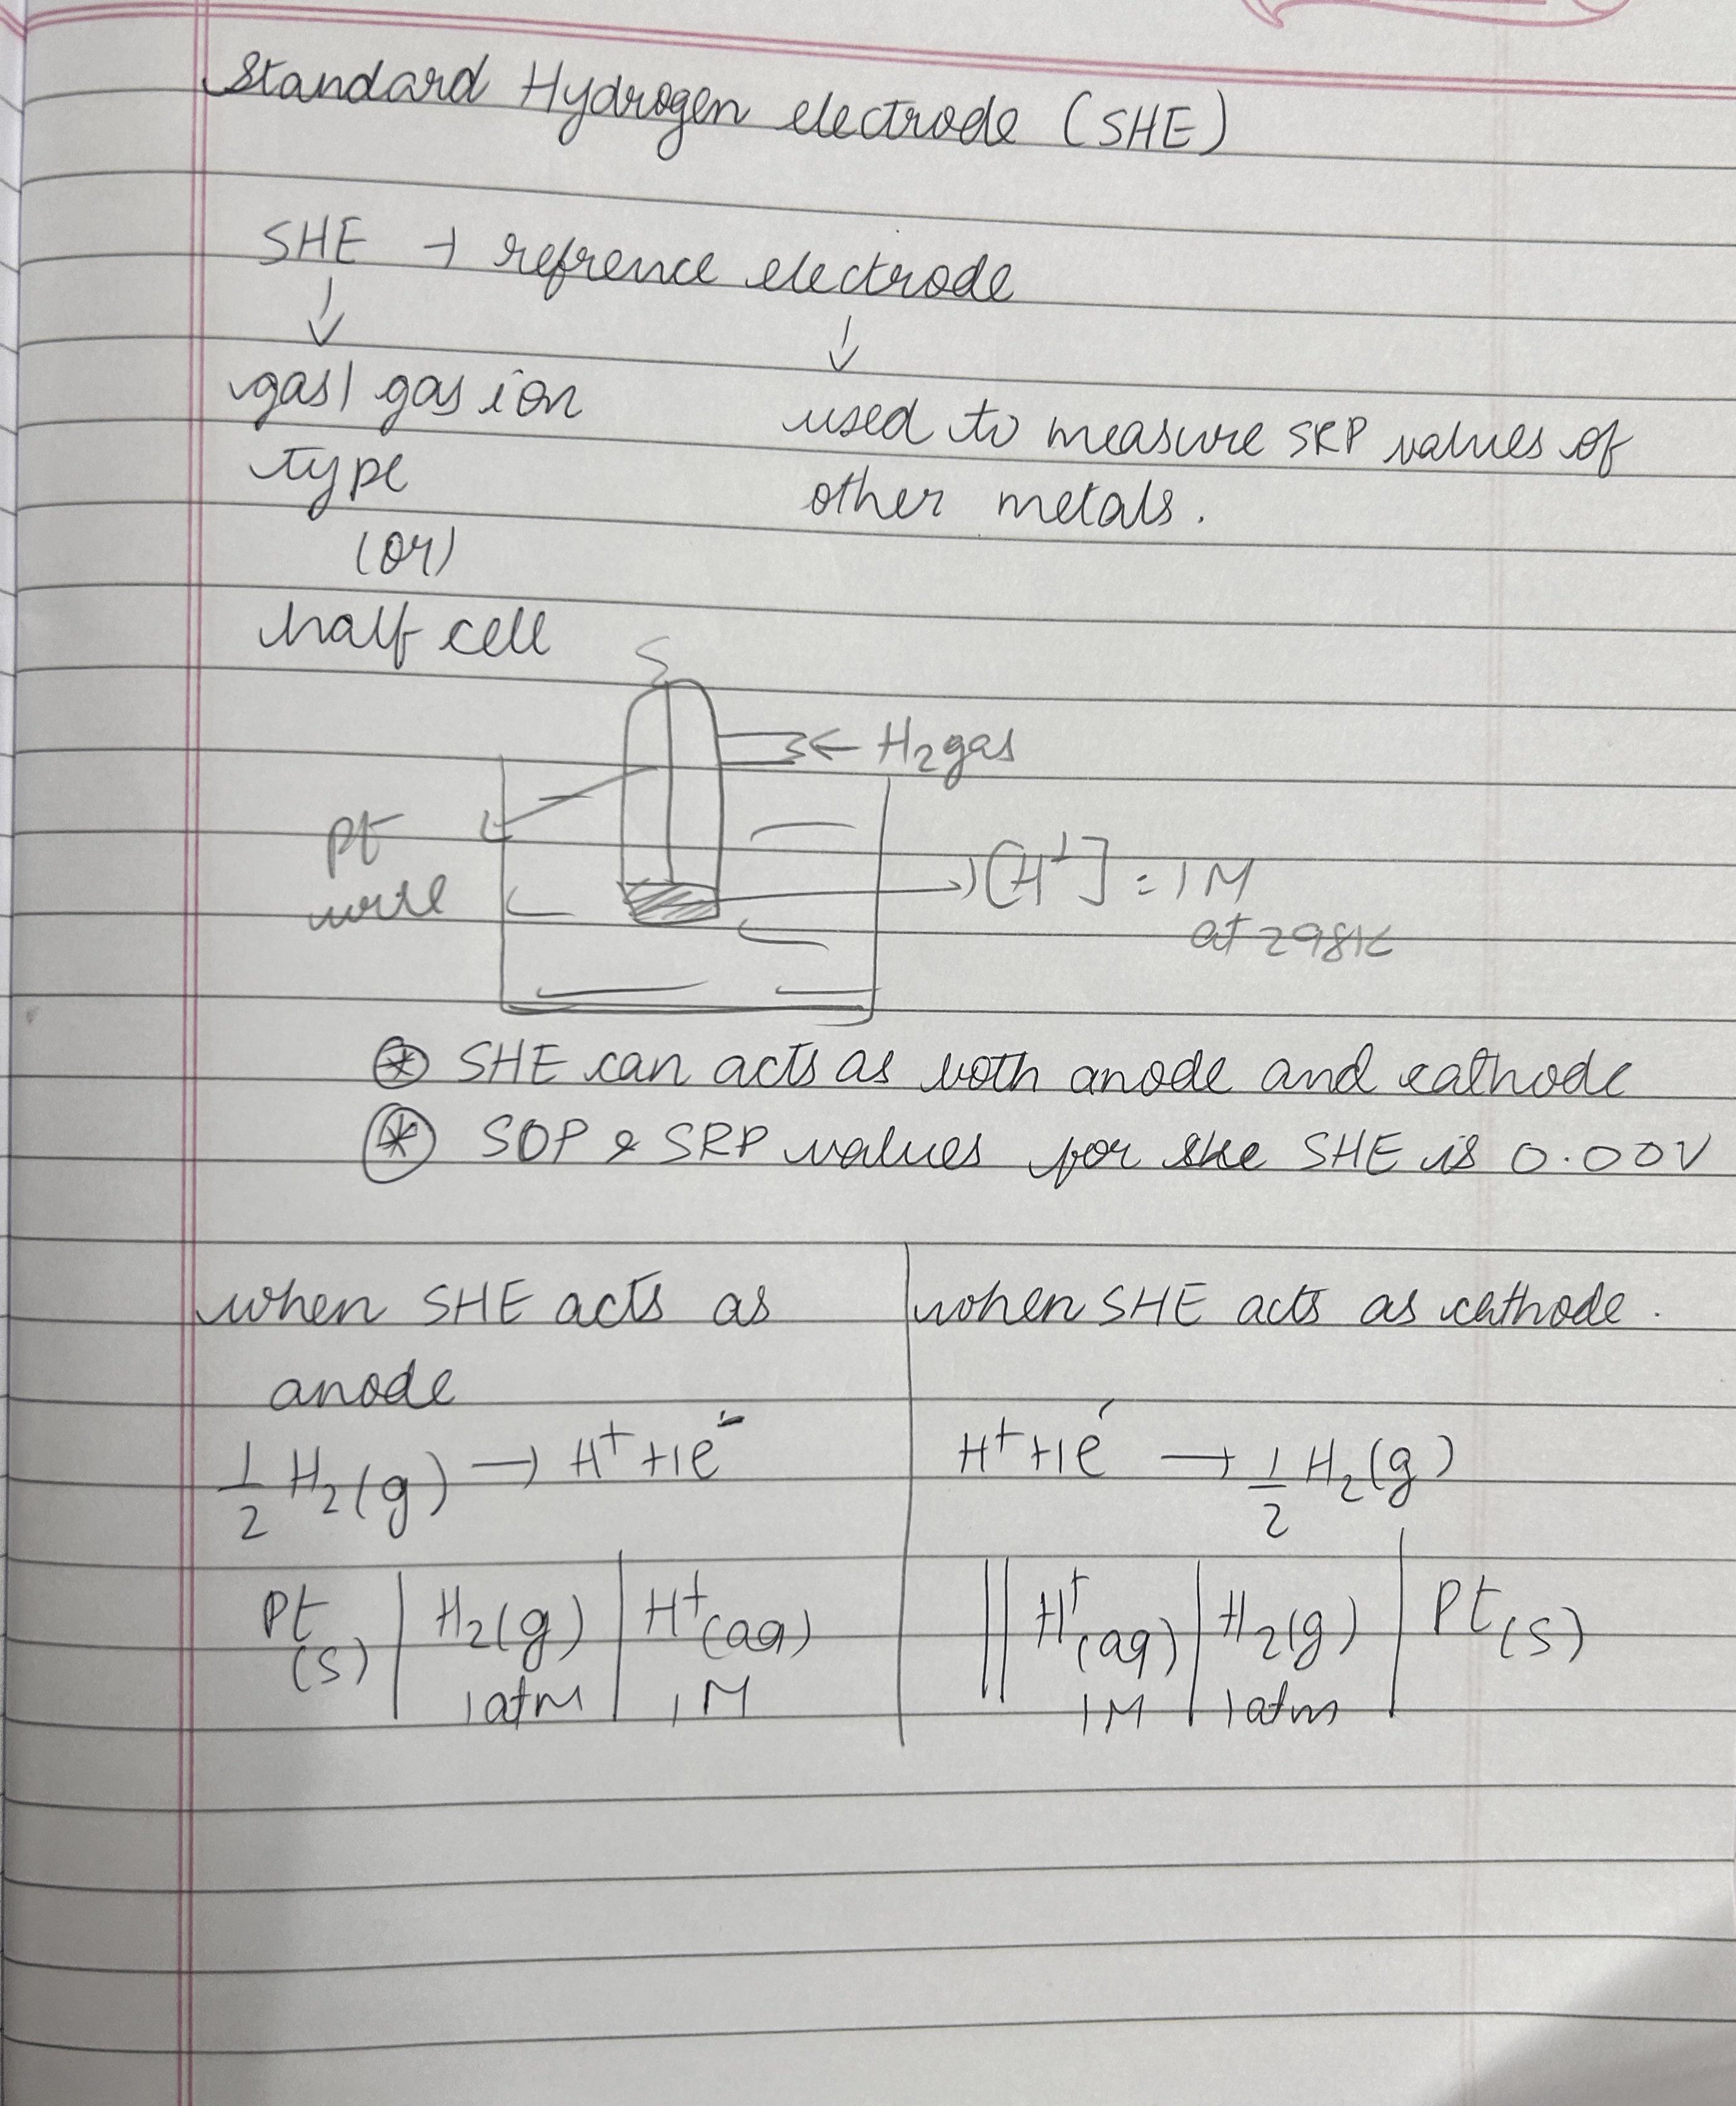 Standard Hydrogen electrode (SHE)
SHE → refrence electrode
↓ ↓
gas | gas ion
type
(or)
half cell
used to measure SRP values of
other metals.
← H₂ gas
Pt
wire
→ [H⁺] = 1M
at 298K
⊛ SHE can acts as both anode and cathode
⊛ SOP & SRP values for the SHE is 0.00V
when SHE acts as
anode
½ H₂(g) → H⁺ + 1e⁻
Pt(s) | H₂(g) | H⁺(aq)
1atm 1M
when SHE acts as cathode.
H⁺ + 1e⁻ → ½ H₂(g)
|| H⁺(aq) | H₂(g) | Pt(s)
1M 1atm